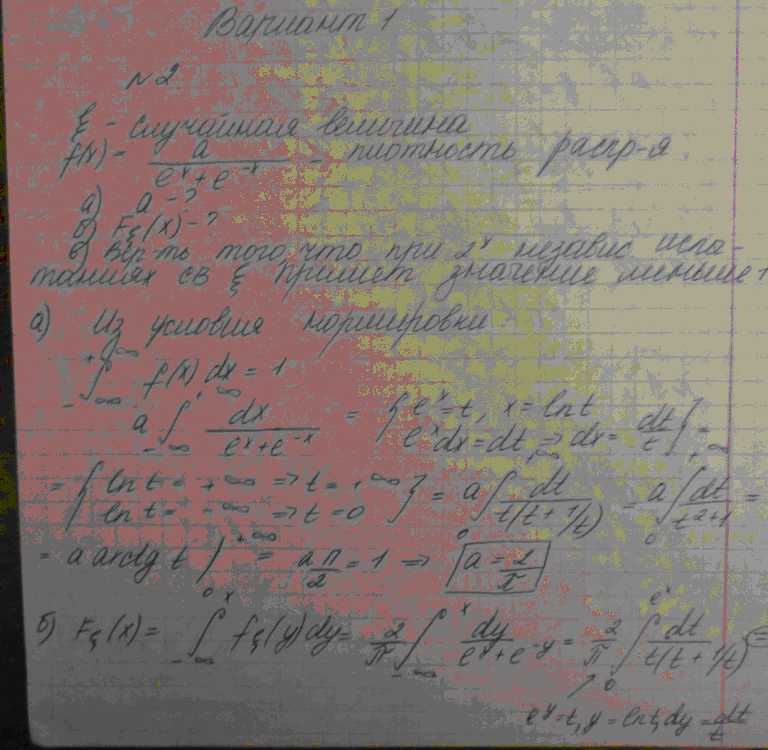 Вариант 1
№2
ξ - случайная величина
f(x) = a/(e^x + e^-x) - плотность распр-я.
а) a - ?
б) F_ξ(x) - ?
в) вер-ть того, что при 2^х независ испы-
таниях св ξ примет значение меньше 1
а) Из условия нормировки
∫_{-∞}^{+∞} f(x) dx = 1
a ∫_{-∞}^{+∞} dx/(e^x + e^-x) = { e^x = t, x = ln t
e^x dx = dt ⇒ dx = dt/t } =
= { ln t = +∞ ⇒ t = +∞
ln t = -∞ ⇒ t = 0 } = a ∫_0^{+∞} dt/(t(t + 1/t)) = a ∫_0^{+∞} dt/(t²+1) =
= a arctg t |_0^{+∞} = aπ/2 = 1 ⇒ a = 2/π
б) F_ξ(x) = ∫_{-∞}^x f_ξ(y) dy = 2/π ∫_{-∞}^x dy/(e^y + e^-y) = 2/π ∫_0^{e^x} dt/(t(t + 1/t)) =
e^y = t, y = ln t, dy = dt/t